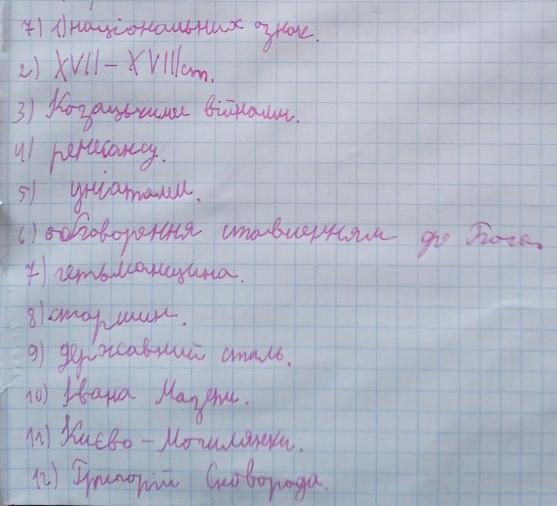 7) 1) національних ознак.
2) XVII – XVIII ст.
3) Козацькими війнами.
4) ренесансу.
5) уніатами.
6) обговорення ставленням до Бога.
7) гетьманщина.
8) старшин.
9) державний стиль.
10) Івана Мазепи.
11) Києво – Могилянки.
12) Григорій Сковорода.